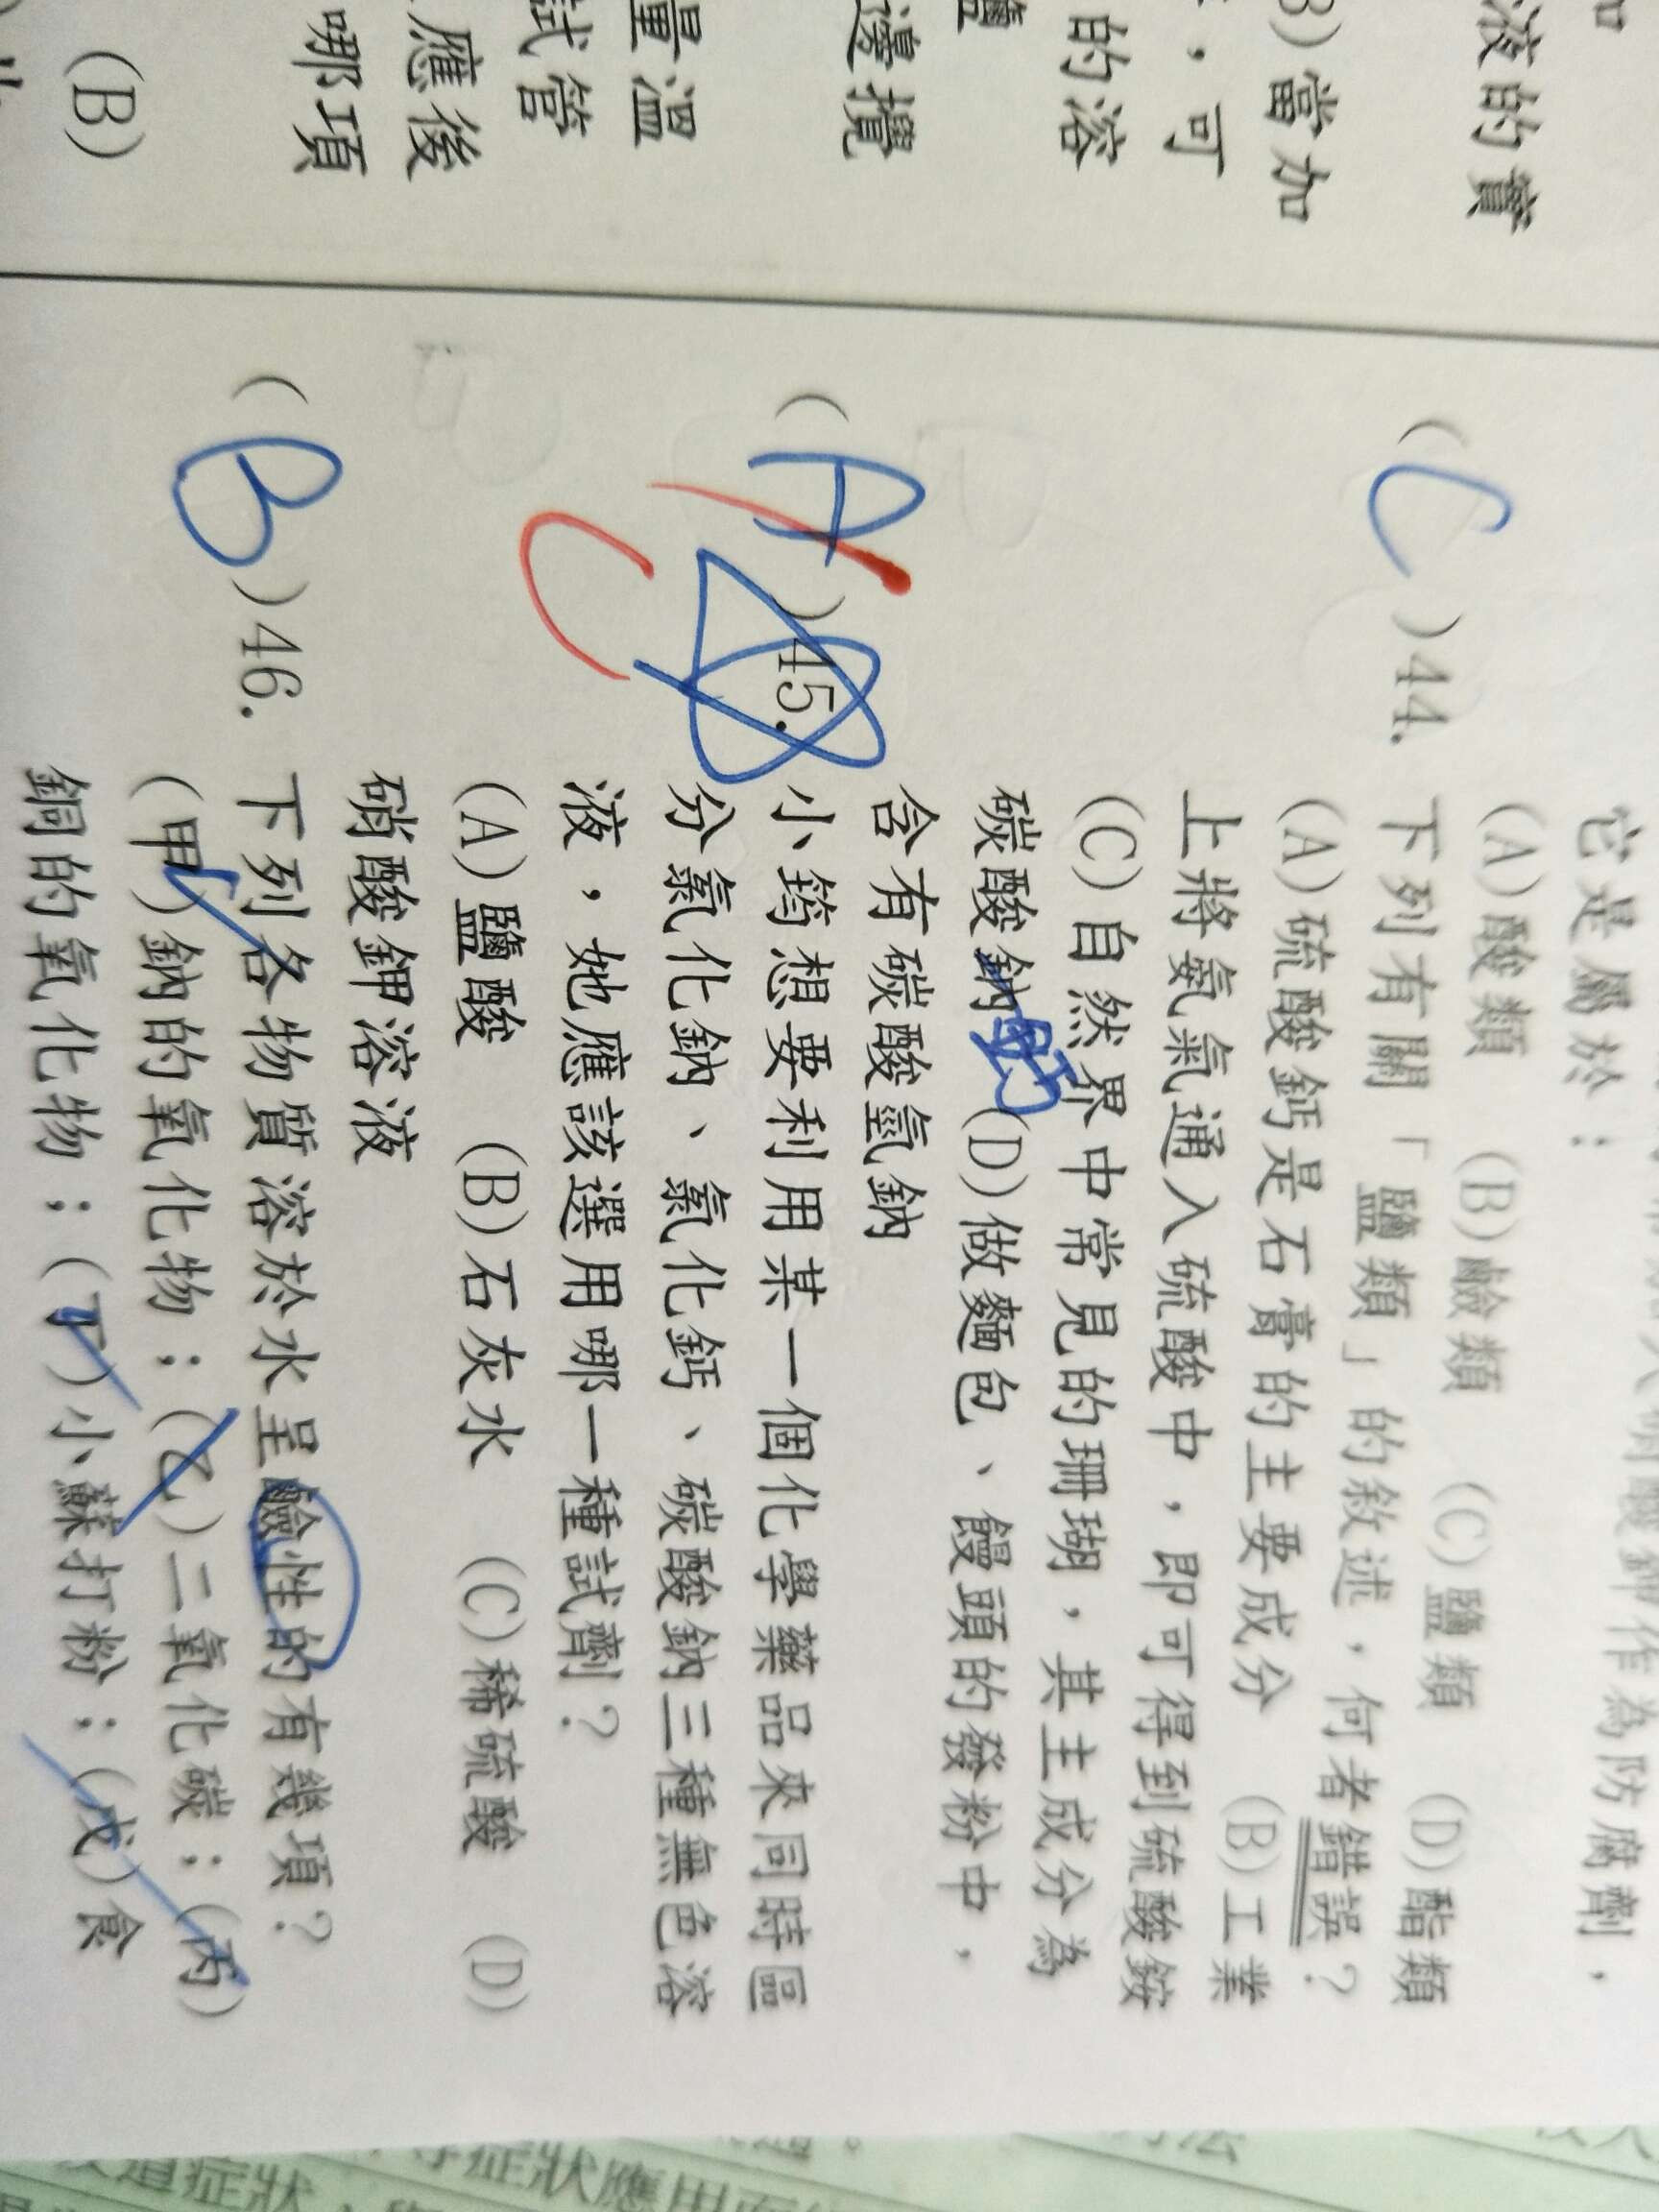 加
液的實
B)當加
，可
的溶
鹽
邊攪
量溫
試管
應後
哪項
(B)
它是屬於：
(A)酸類 (B)鹼類 (C)鹽類 (D)酯類
(C)44. 下列有關「鹽類」的敘述，何者錯誤？
(A)硫酸鈣是石膏的主要成分 (B)工業
上將氨氣通入硫酸中，即可得到硫酸銨
(C)自然界中常見的珊瑚，其主成分為
碳酸鈉鈣(D)做麵包、饅頭的發粉中，
含有碳酸氫鈉
(A)45. 小筠想要利用某一個化學藥品來同時區
C
分氯化鈉、氯化鈣、碳酸鈉三種無色溶
液，她應該選用哪一種試劑？
(A)鹽酸 (B)石灰水 (C)稀硫酸 (D)
硝酸鉀溶液
(B)46. 下列各物質溶於水呈鹼性的有幾項？
(甲)鈉的氧化物；(乙)二氧化碳；(丙)
銅的氧化物；(丁)小蘇打粉；(戊)食
症狀應用
道症狀，